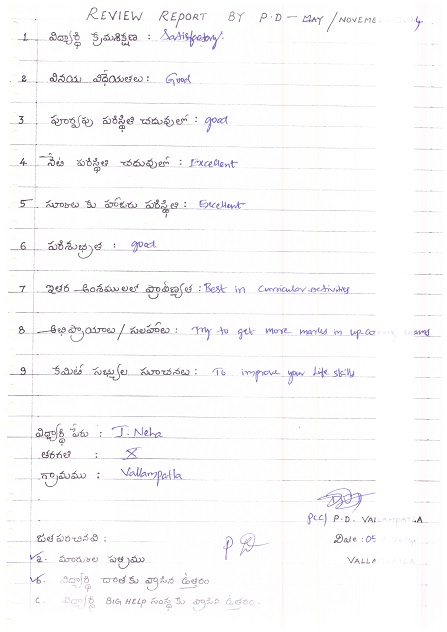 REVIEW REPORT BY P.D - MAY / NOVEME
1 విద్యార్థి క్రమశిక్షణ : Satisfactory.
2 వినయ విధేయతలు : Good
3 పూర్వపు పరిస్థితి చదువులో : good
4 నేటి పరిస్థితి చదువులో : Excellent
5 స్కూలు కు హాజరు పరిస్థితి : Excellent
6 పరిశుభ్రత : good
7 ఇతర అంశములలో ప్రావీణ్యత : Best in curricular activities
8 అభిప్రాయాలు / సలహాలు : Try to get more marks in upcoming exams
9 కమిటి సభ్యుల సూచనలు : To improve your Life skills
విద్యార్థి పేరు : J. Neha
తరగతి : X
గ్రామము : Vallampatla
PCC/ P.D. VALLAMPATLA
జతపరచినవి : Date : 05
a. మార్కుల పత్రము VALLAMPATLA
b. విద్యార్థి దాతకు వ్రాసిన ఉత్తరం
c. విద్యార్థి BIG HELP సంస్థకు వ్రాసిన ఉత్తరం.
PD